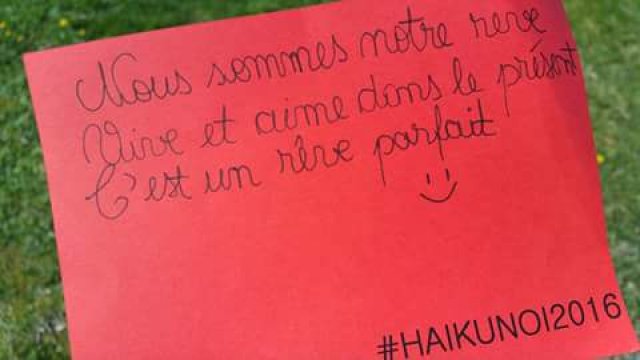 Nous sommes notre reve
Vive et aime dans le présent
C'est un rêve parfait
:)
#HAIKUNOI2016